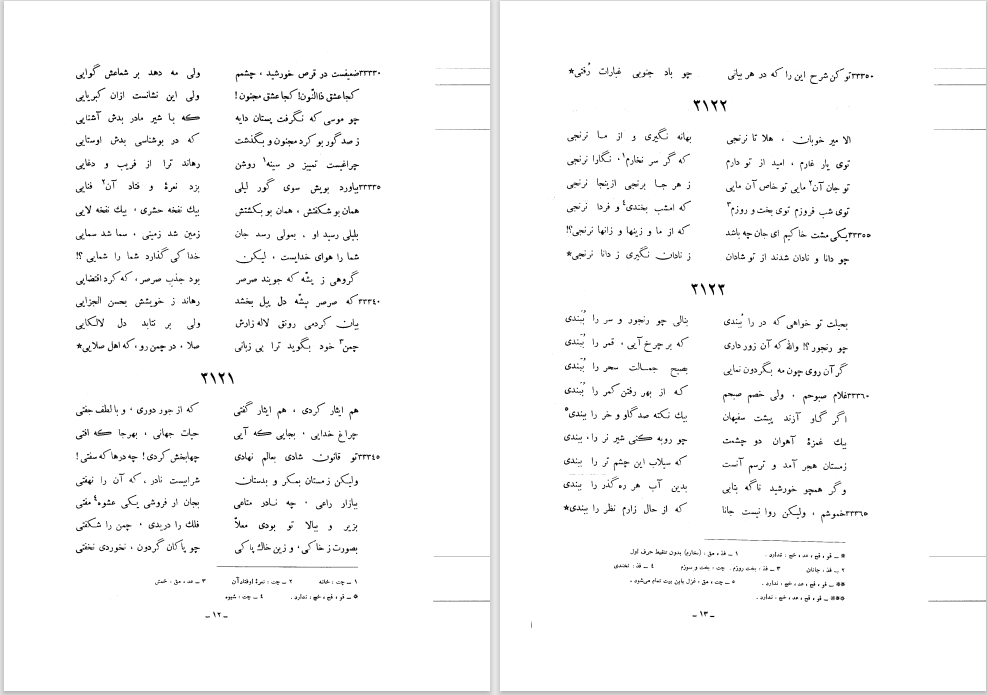 ۳۳۳۳۰ ضعیفست در قرص خورشید ، چشمم ولی مه دهد بر شعاعش گوایی
کجا عشق ذاالنّون! کجا عشق مجنون! ولی این نشانست ازان کبریایی
چو موسی که نگرفت پستان دایه که با شیر مادر بدش آشنایی
ز صد گور بو کرد مجنون و بگذشت که در بوشناسی بدش اوستایی
چراغیست تمییز در سینه۱ روشن رهاند ترا از فریب و دغایی
۳۳۳۳۵ بیاورد بویش سوی گور لیلی بزد نعرهٔ و فتاد آن۲ فنایی
همان بو شکفتش ، همان بو بکشتش بیك نفخه حشری ، بیك نفخه لایی
بلیلی رسید او ، بمولی رسد جان زمین شد زمینی ، سما شد سمایی
شما را هوای خدایست ، لیکن خدا کی گذارد شما را شمایی ؟!
گروهی ز پشّه که جویند صرصر بود جذب صرصر ، که کرد اقتضایی
۳۳۳۴۰ که صرصر بپشّه دل پیل بخشد رهاند ز خویشش بحسن الجزایی
بیان کردمی رونق لاله زارش ولی بر نتابد دل لالکایی
چمن۳ خود بگوید ترا بی زبانی صلا ، در چمن رو ، که اهل صلایی*
۳۱۲۱
هم ایثار کردی ، هم ایثار گفتی که از جور دوری ، و با لطف جفتی
چراغ خدایی ، بجایی که آیی حیات جهانی ، بهرجا که افتی
۳۳۳۴۵ تو قانون شادی بعالم نهادی چهابخش کردی! چه درها که سفتی!
ولیکن ز مستان بمکر و بدستان شرابیست نادر ، که آن را نهفتی
ببازار راعی ، چه نادر متاعی بجان ار فروشی یکی عشوه۴ مفتی
بزیر و ببالا تو بودی معلاّ فلك را دریدی ، چمن را شکفتی
بصورت ز خاکی ، و زین خاك پاکی چو پاکان گردون ، نخوردی نخفتی
۱ ــ چت : خانه ۲ ــ چت : نعرهٔ اوفتاد آن ۳ ــ عد ، مق : خمش
* ــ قو ، قح ، خج : ندارد . ۴ ــ چت : شیوه
ــ ۱۲ ــ
۳۳۳۵۰ تو کن شرح این را که در هر بیانی چو باد جنوبی غبارات رُفتی*
۳۱۲۲
الا میر خوبان ، هلا تا نرنجی بهانه نگیری و از ما نرنجی
توی یار غارم ، امید از تو دارم که گر سر نخارم۱ ، نگارا نرنجی
تو جان آن۲ مایی تو خاص آن مایی ز هر جا برنجی ازینجا نرنجی
توی شب فروزم توی بخت و روزم۳ که امشب بخندی۴ و فردا نرنجی
۳۳۳۵۵ یکی مشت خاکیم ای جان چه باشد که از ما و زینها و زانها نرنجی؟!
چو دانا و نادان شدند از تو شادان ز نادان نگیری ز دانا نرنجی*
۳۱۲۳
بحیلت تو خواهی که در را بُبندی بنالی چو رنجور و سر را بُبندی
چو رنجور؟! والله که آن زور داری که بر چرخ آیی ، قمر را بُبندی
گر آن روی چون مه بگردون نمایی بصبح جمالت سحر را ببندی
۳۳۳۶۰ غلام صبوحم ، ولی خصم صبحم که از بهر رفتن کمر را بُبندی
اگر گاو آرند پیشت سفیهان بیك نکته صد گاو و خر را ببندی۵
بیك غمزهٔ آهوان دو چشمت چو روبه کنی شیر نر را ، ببندی
زمستان هجر آمد و ترسم آنست که سیلاب این چشم تر را ببندی
وگر همچو خورشید ناگه بتابی بدین آب هر ره گذر را ببندی
۳۳۳۶۵ خموشم ، ولیکن روا نیست جانا که از حال زارم نظر را ببندی*
* ــ قو ، قح ، عد ، خج : ندارد . ۱ ــ فذ ، مق : (مخارم) بدون تنقیط حرف اول
۲ ــ فذ : جانان ۳ ــ فذ : بخت روزم . چت : بخت و سوزم ۴ ــ فذ : نخندی
** ــ قو ، قح ، عد ، خج : ندارد . ۵ ــ چت ، مق : غزل باین بیت تمام می‌شود .
*** ــ قو ، قح ، عد ، خج : ندارد .
ــ ۱۳ ــ